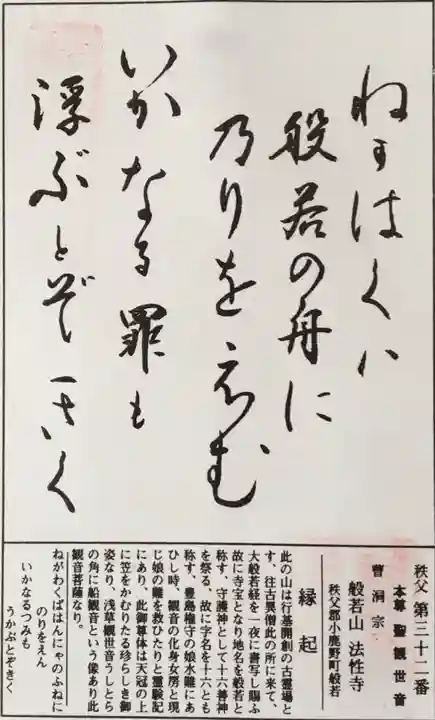 ねがはくハ
般若の舟に
乃りをえむ
いかなる罪も
浮ぶとぞきく
秩父 第三十二番
本尊 聖観世音
曹洞宗
般若山 法性寺
秩父郡小鹿野町般若
縁起
此の山は行基開創の古霊場と
す、往古異僧此の所に来て、
大般若経を一夜に書写し賜ふ
故に寺宝となり地名を般若と
称す、守護神として十六善神
を祭る、故に字名を十六とも
称す、豊島権守の娘水難にあ
ひし時、観音の化身女房と現
じ娘の難を救ひたりと霊験記
にあり、此御尊体は天冠の上
に笠をかむりたる珍らしき御
姿なり、浅草観世音うしとら
の角に船観音という像あり此
観音菩薩なり。
ねがわくばはんにゃのふねに
のりをえん
いかなるつみも
うかぶとぞきく